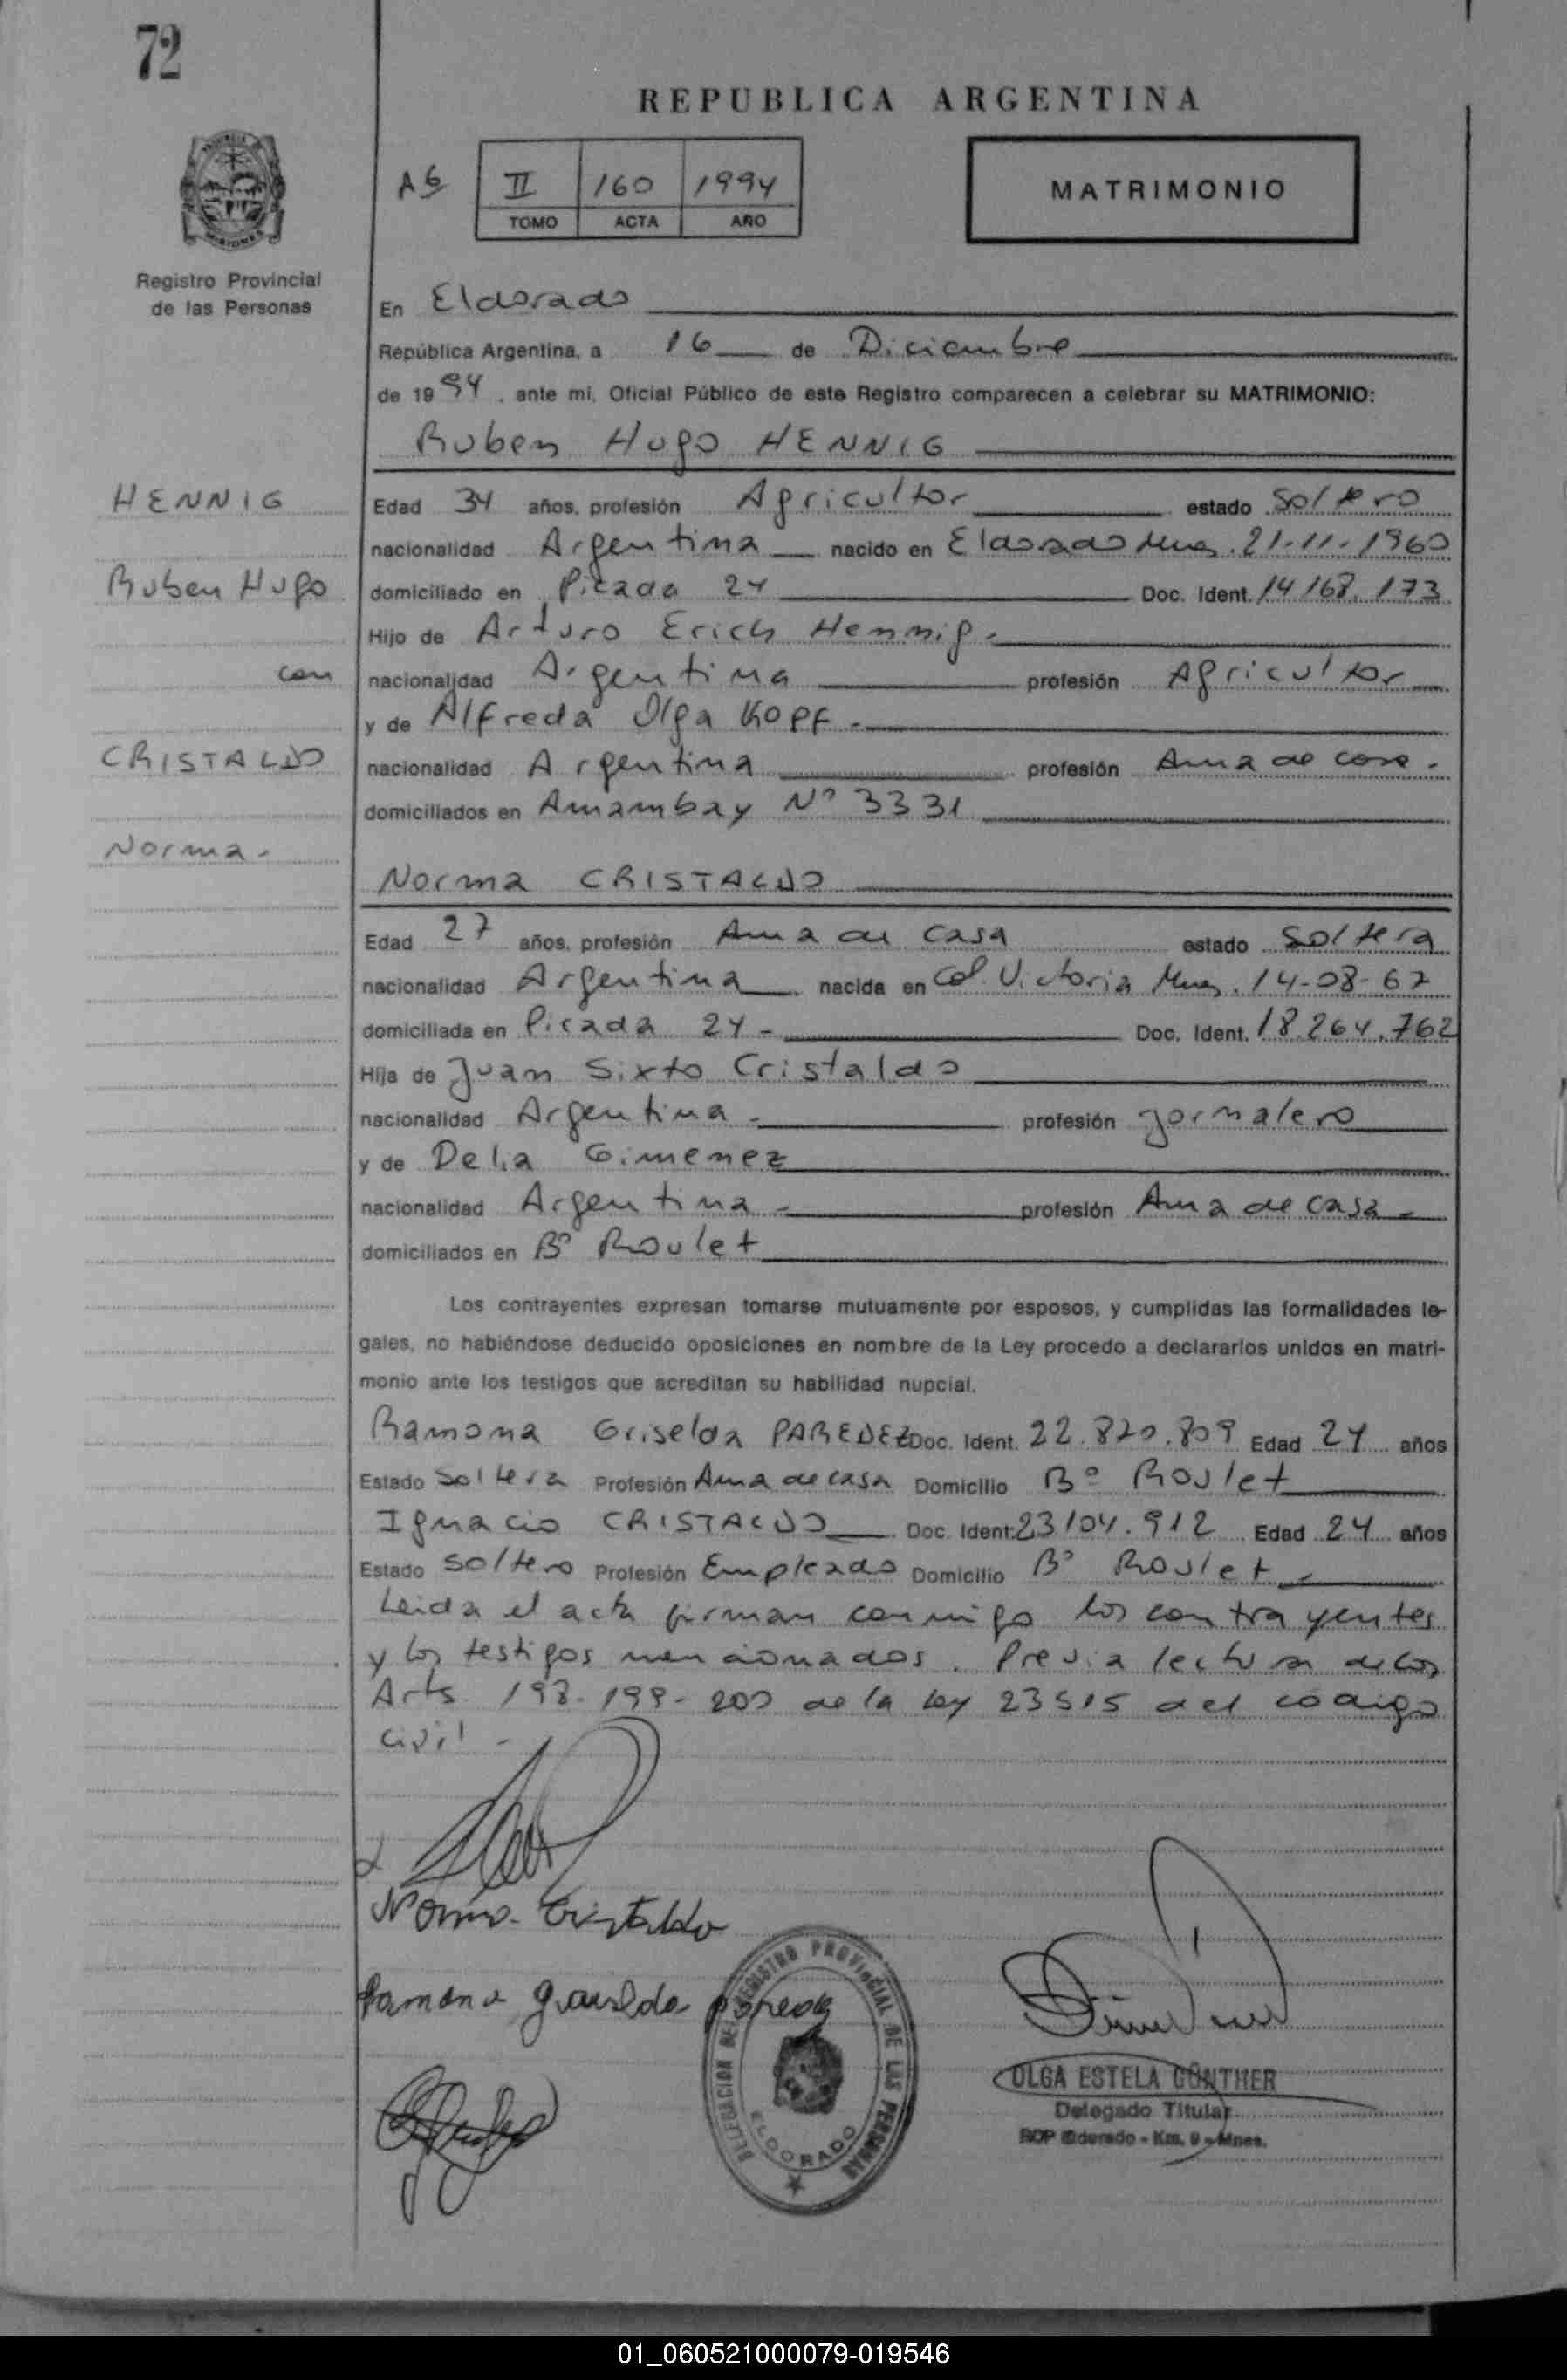 72
REPUBLICA ARGENTINA
A6 II 160 1994
TOMO ACTA AÑO
MATRIMONIO
Registro Provincial
de las Personas
En Eldorado
República Argentina, a 16 de Diciembre
de 1994, ante mi, Oficial Público de este Registro comparecen a celebrar su MATRIMONIO:
Ruben Hugo HENNIG
HENNIG
Edad 34 años, profesión Agricultor estado Soltero
nacionalidad Argentina nacido en Eldorado Mnes. 21-11-1960
Ruben Hugo
domiciliado en Picada 24 Doc. Ident. 14168.173
Hijo de Arturo Erich Hennig.-
con
nacionalidad Argentina profesión Agricultor
y de Alfreda Olga Kopf.-
CRISTALDO
nacionalidad Argentina profesión Ama de casa.
domiciliados en Amambay Nº 3331
Norma.-
Norma CRISTALDO
Edad 27 años, profesión Ama de casa estado Soltera
nacionalidad Argentina nacida en Col. Victoria Mnes. 14-08-67
domiciliada en Picada 24- Doc. Ident. 18.264.762
Hija de Juan Sixto Cristaldo
nacionalidad Argentina.- profesión jornalero
y de Delia Gimenez
nacionalidad Argentina.- profesión Ama de casa-
domiciliados en Bº Roulet
Los contrayentes expresan tomarse mutuamente por esposos, y cumplidas las formalidades le-
gales, no habiéndose deducido oposiciones en nombre de la Ley procedo a declararlos unidos en matri-
monio ante los testigos que acreditan su habilidad nupcial.
Ramona Griselda PAREDEZ Doc. Ident. 22.820.809 Edad 24 años
Estado Soltera Profesión Ama de casa Domicilio Bº Roulet
Ignacio CRISTALDO Doc. Ident. 23104.912 Edad 24 años
Estado Soltero Profesión Empleado Domicilio Bº Roulet-
Leida el acta firman conmigo los contrayentes
y los testigos mencionados. Previa lectura de los
Arts 198-199-200 de la Ley 23515 del codigo
civil-
Norma Cristaldo
Ramona Griselda Paredez
DELEGACION DEL REGISTRO PROVINCIAL DE LAS PERSONAS
ELDORADO
OLGA ESTELA GÜNTHER
Delegado Titular
RDP Eldorado - Km. 9 - Mnes.
01_060521000079-019546